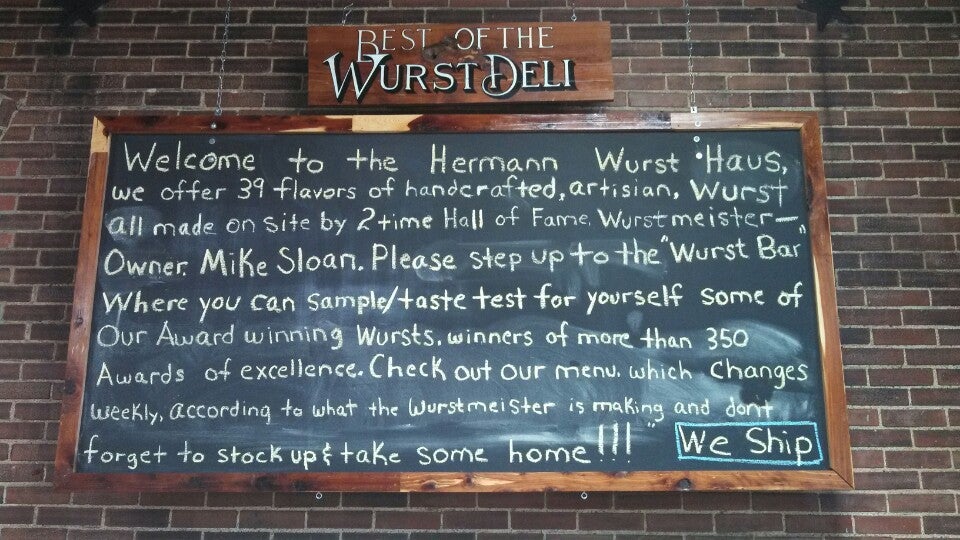 BEST OF THE
WURST DELI
Welcome to the Hermann Wurst Haus,
we offer 39 flavors of handcrafted, artisian, Wurst
all made on site by 2 time Hall of Fame, Wurstmeister—
Owner, Mike Sloan. Please step up to the "Wurst Bar"
Where you can sample/taste test for yourself some of
Our Award winning Wursts, winners of more than 350
Awards of excellence. Check out our menu, which changes
weekly, according to what the Wurstmeister is making and dont
forget to stock up & take some home!!!"
We Ship